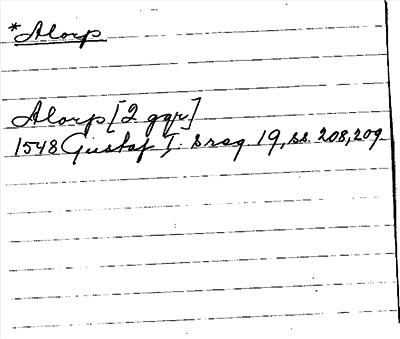 *Alorp
Alorp [2 ggr]
1548 Gustaf I. s reg. 19, ss. 208, 209.